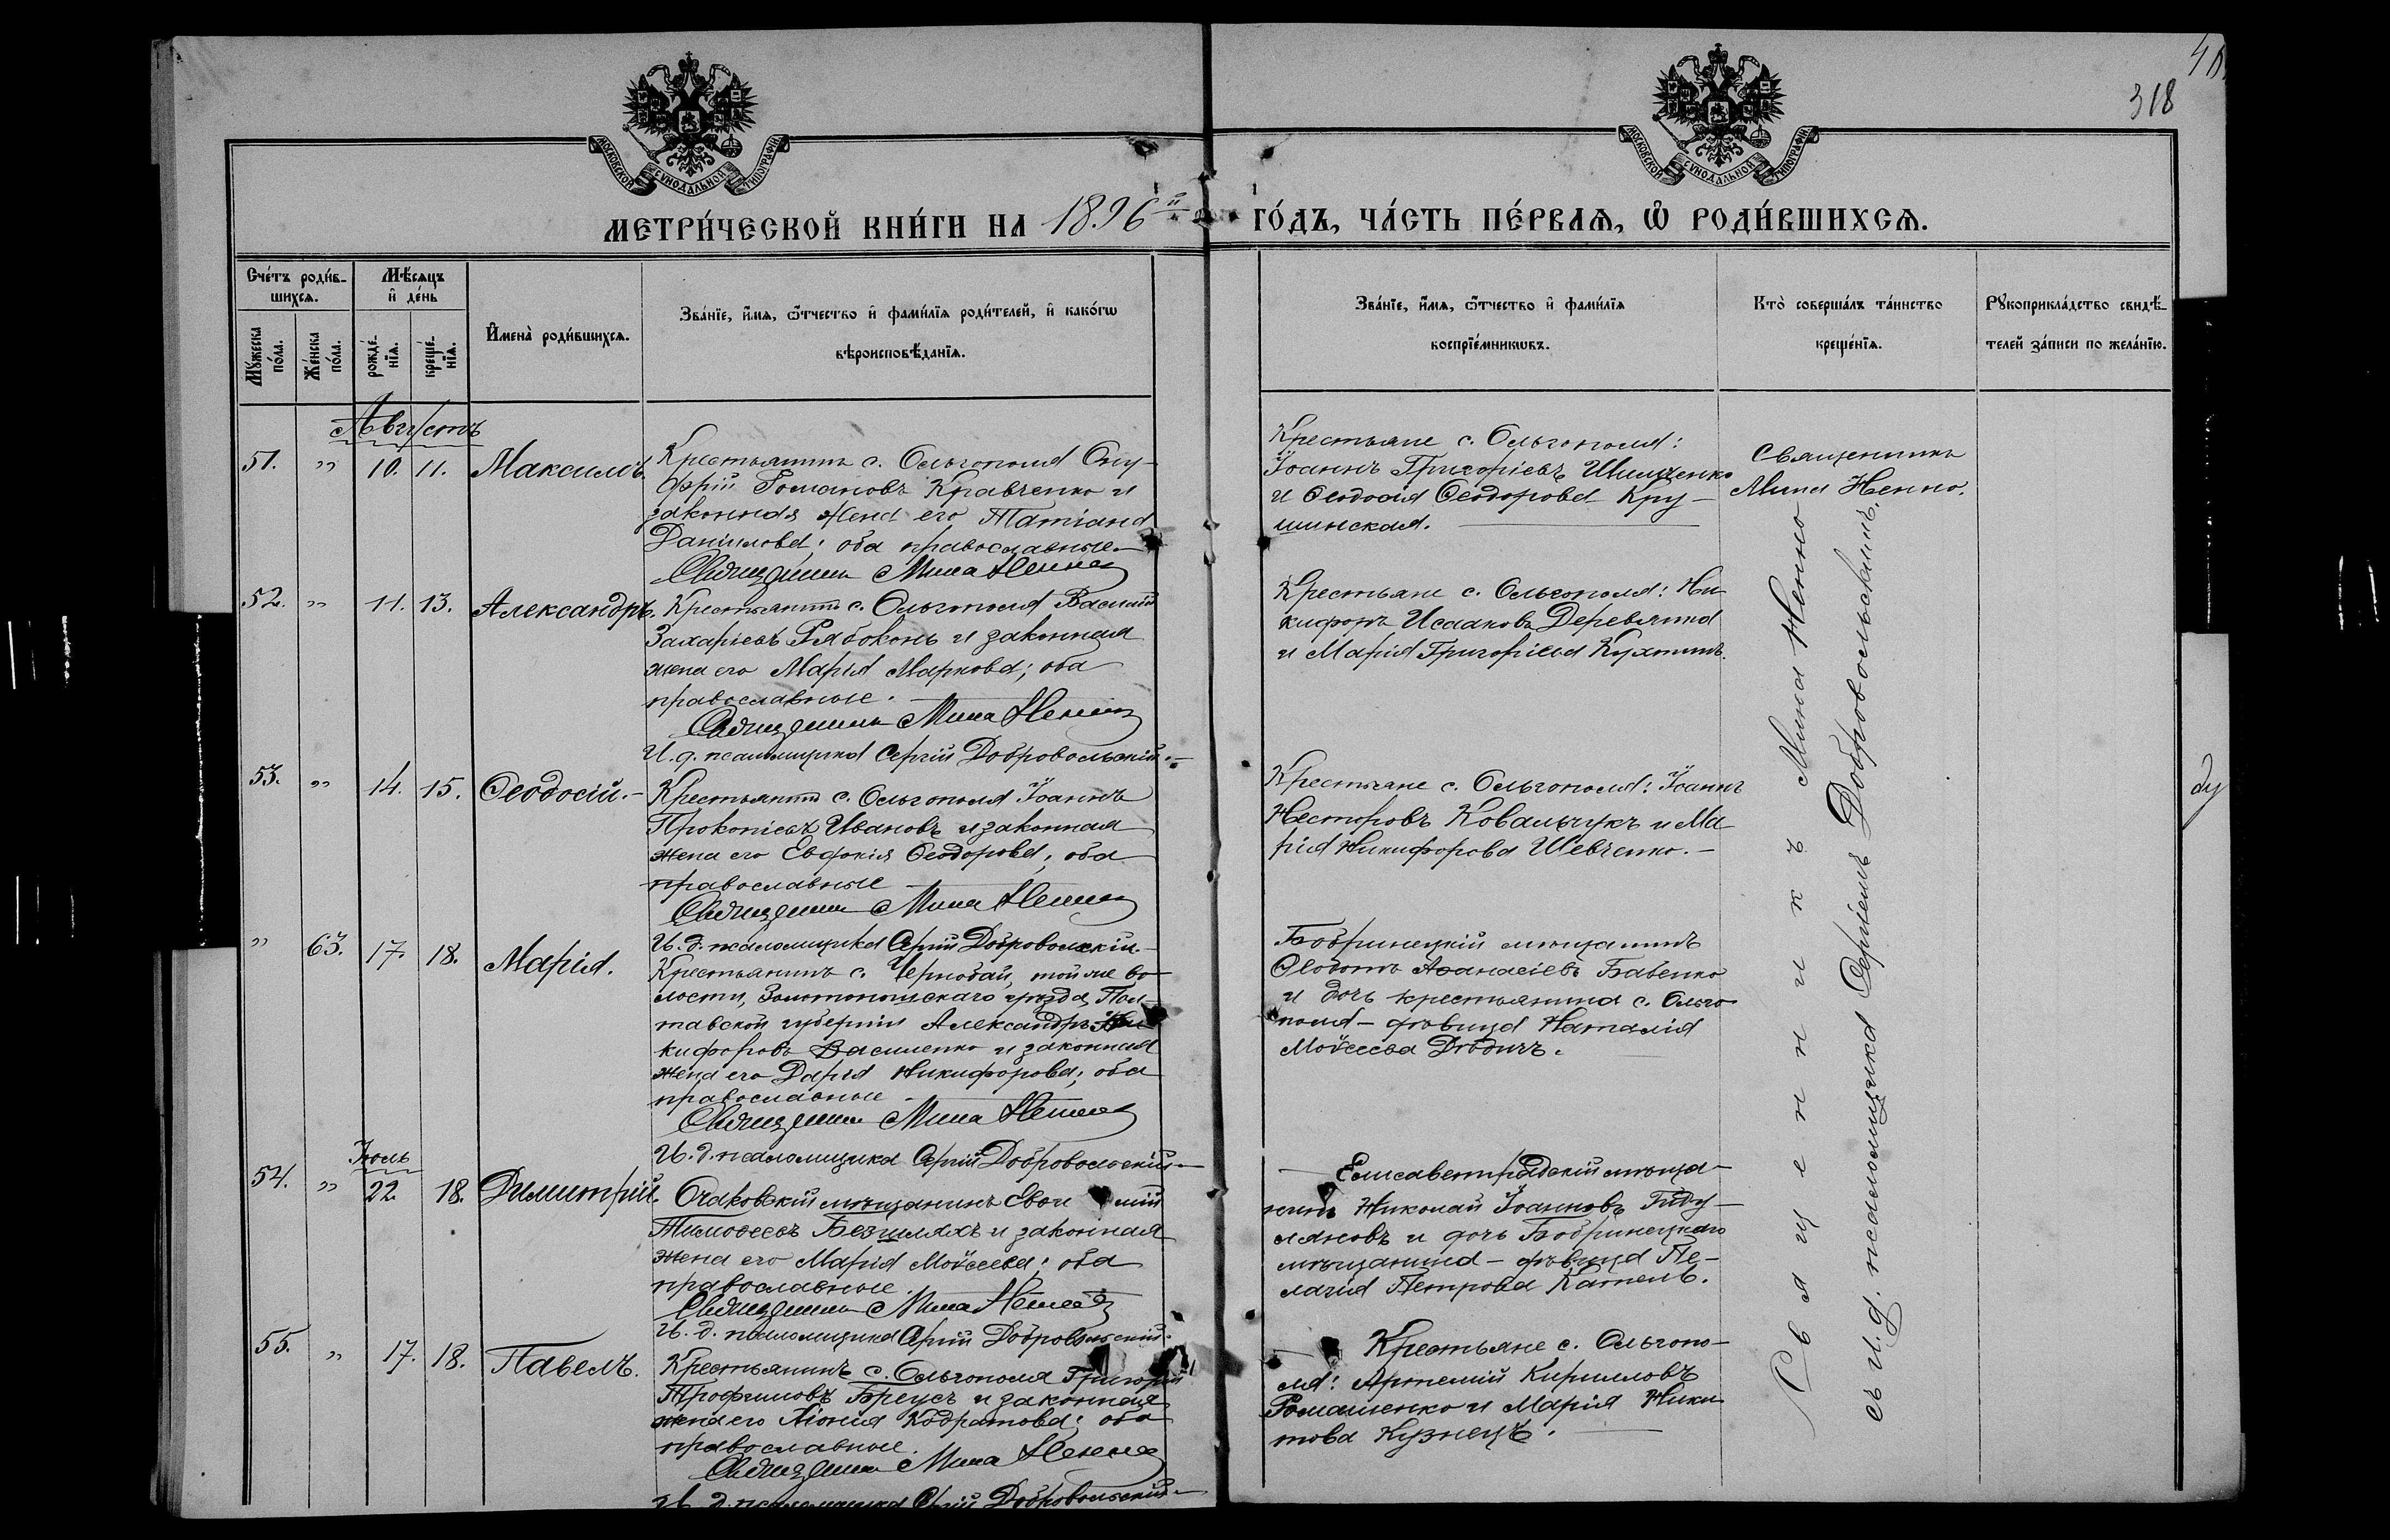 418
318
МОСКОВСКОЙ СѴНОДАЛЬНОЙ ТИПОГРАФІИ
МОСКОВСКОЙ СѴНОДАЛЬНОЙ ТИПОГРАФІИ
МЕТРИ́ЧЕСКОЙ КНИ́ГИ НА 1896й ГО́ДЪ, ЧА́СТЬ ПЕ́РВАѦ, Ѽ РОДИ́ВШИХСѦ.
Сче́тъ роди́в-
шихсѧ.
Мꙋ́жеска по́ла.
Же́нска по́ла.
Мѣ́сѧцъ
и҆ де́нь
рожде́-
нїѧ.
креще́-
нїѧ.
И҆мена̀ роди́вшихсѧ.
Зва́нїе, и҆́мѧ, ѻ҆́тчество и҆ фами́лїѧ роди́телей, и҆ како́гѡ
вѣроисповѣ́данїѧ.
Зва́нїе, и҆́мѧ, ѻ҆́тчество и҆ фами́лїѧ
воспрїе́мникѡвъ.
Кто̀ соверша́лъ та́инство
креще́нїѧ.
Рꙋкоприкла́дство свидѣ́-
телей за́писи по жела́нїю.
Августъ
51. " 10. 11. Максимъ.
Крестьянинъ с. Ольгополя Ону-
фрій Романовъ Кравченко и
законная жена его Татіана
Даніилова; оба православные.
Священникъ Мина Ненно
Крестьяне с. Ольгополя:
Іоаннъ Григоріевъ Шищенко
и Ѳеодосія Ѳеодорова Кру-
шинская.
Священникъ
Мина Ненно.
52. " 11. 13. Александръ.
Крестьянинъ с. Ольгополя Василій
Захаріевъ Рябоконь и законная
жена его Марія Маркова; оба
православные.
Священникъ Мина Ненно
И. д. псаломщика Сергій Добровольскій.
Крестьяне с. Ольгополя: Ни-
кифоръ Исааковъ Деревянко
и Марія Григорьева Кухтинъ.
53. " 14. 15. Ѳеодосій.
Крестьянинъ с. Ольгополя Іоаннъ
Прокопіевъ Ивановъ и законная
жена его Евдокія Ѳеодорова; оба
православные
Священникъ Мина Ненно
И. д. псаломщика Сергій Добровольскій.
Крестьяне с. Ольгополя: Іоаннъ
Несторовъ Ковальчукъ и Ма-
рія Никифорова Шевченко.
" 63. 17. 18. Марія.
Крестьянинъ с. Чернобай, той же во-
лости, Золотоношскаго уѣзда, Пол-
тавской губерніи Александръ Ни-
кифоровъ Василенко и законная
жена его Дарія Никифорова; оба
православные
Священникъ Мина Ненно
И. д. псаломщика Сергій Добровольскій
Бобринецкій мѣщанинъ
Ѳеодотъ Аѳанасіевъ Бабенко
и дочь крестьянина с. Ольго-
поля - дѣвица Наталія
Моѵсеева Дрбдичъ.
Іюль
54. " 22. 18. Димитрій.
Очаковскій мѣщанинъ Евѳимій
Тимоѳеевъ Безшляхъ и законная
жена его Марія Моѵсеева; оба
православные.
Священникъ Мина Ненно
И. д. псаломщика Сергій Добровольскій.
Елисаветградскій мѣща-
нинъ Николай Іоанновъ
и дочь Бобринецкаго
мѣщанина - дѣвица Пе-
лагія Петрова
55. " 17. 18. Павелъ.
Крестьянинъ с. Ольгополя Григорій
Трофимовъ Бреусъ и законная
жена его Кодратова; оба
православные.
Священникъ Мина Ненно
И. д. псаломщика Сергій Добровольскій
Крестьяне с. Ольгопо-
ля: Артемій Кирилловъ
Ромащенко и Марія Ники-
това Кузнецъ.
Священникъ Мина Ненно
съ и. д. псаломщика Сергіемъ Добровольскимъ.